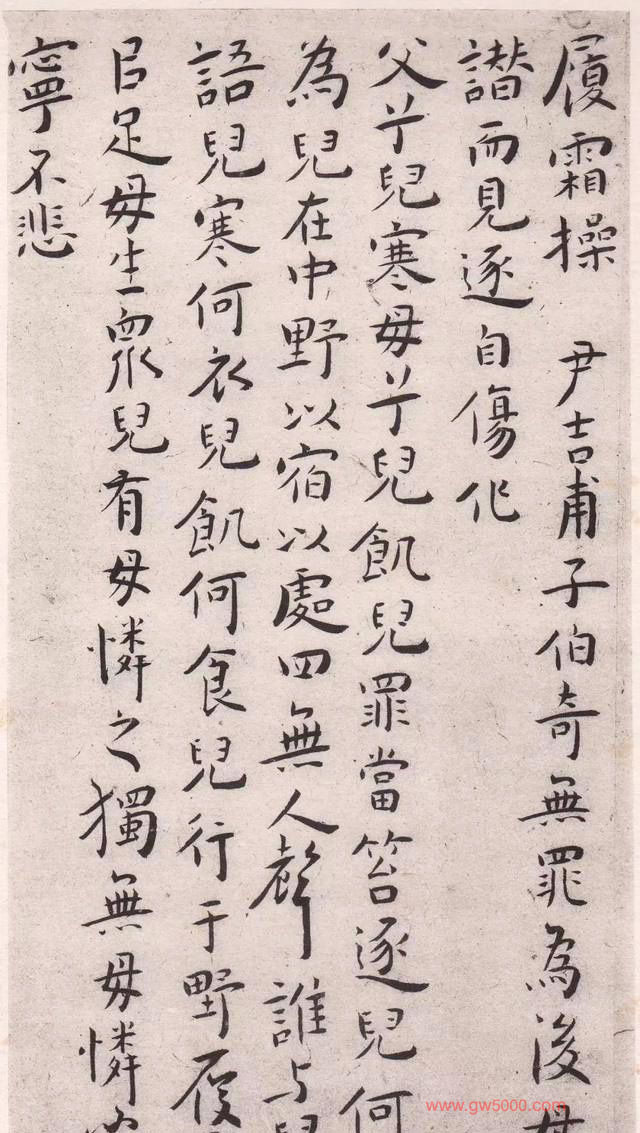 履霜操 尹吉甫子伯奇無罪為後母
譖而見逐自傷作
父兮兒寒母兮兒飢兒罪當笞逐兒何
為兒在中野以宿以處四無人聲誰与兒
語兒寒何衣兒飢何食兒行于野履
㠯足母生眾兒有母憐之獨無母憐
寧不悲
www.gw5000.com